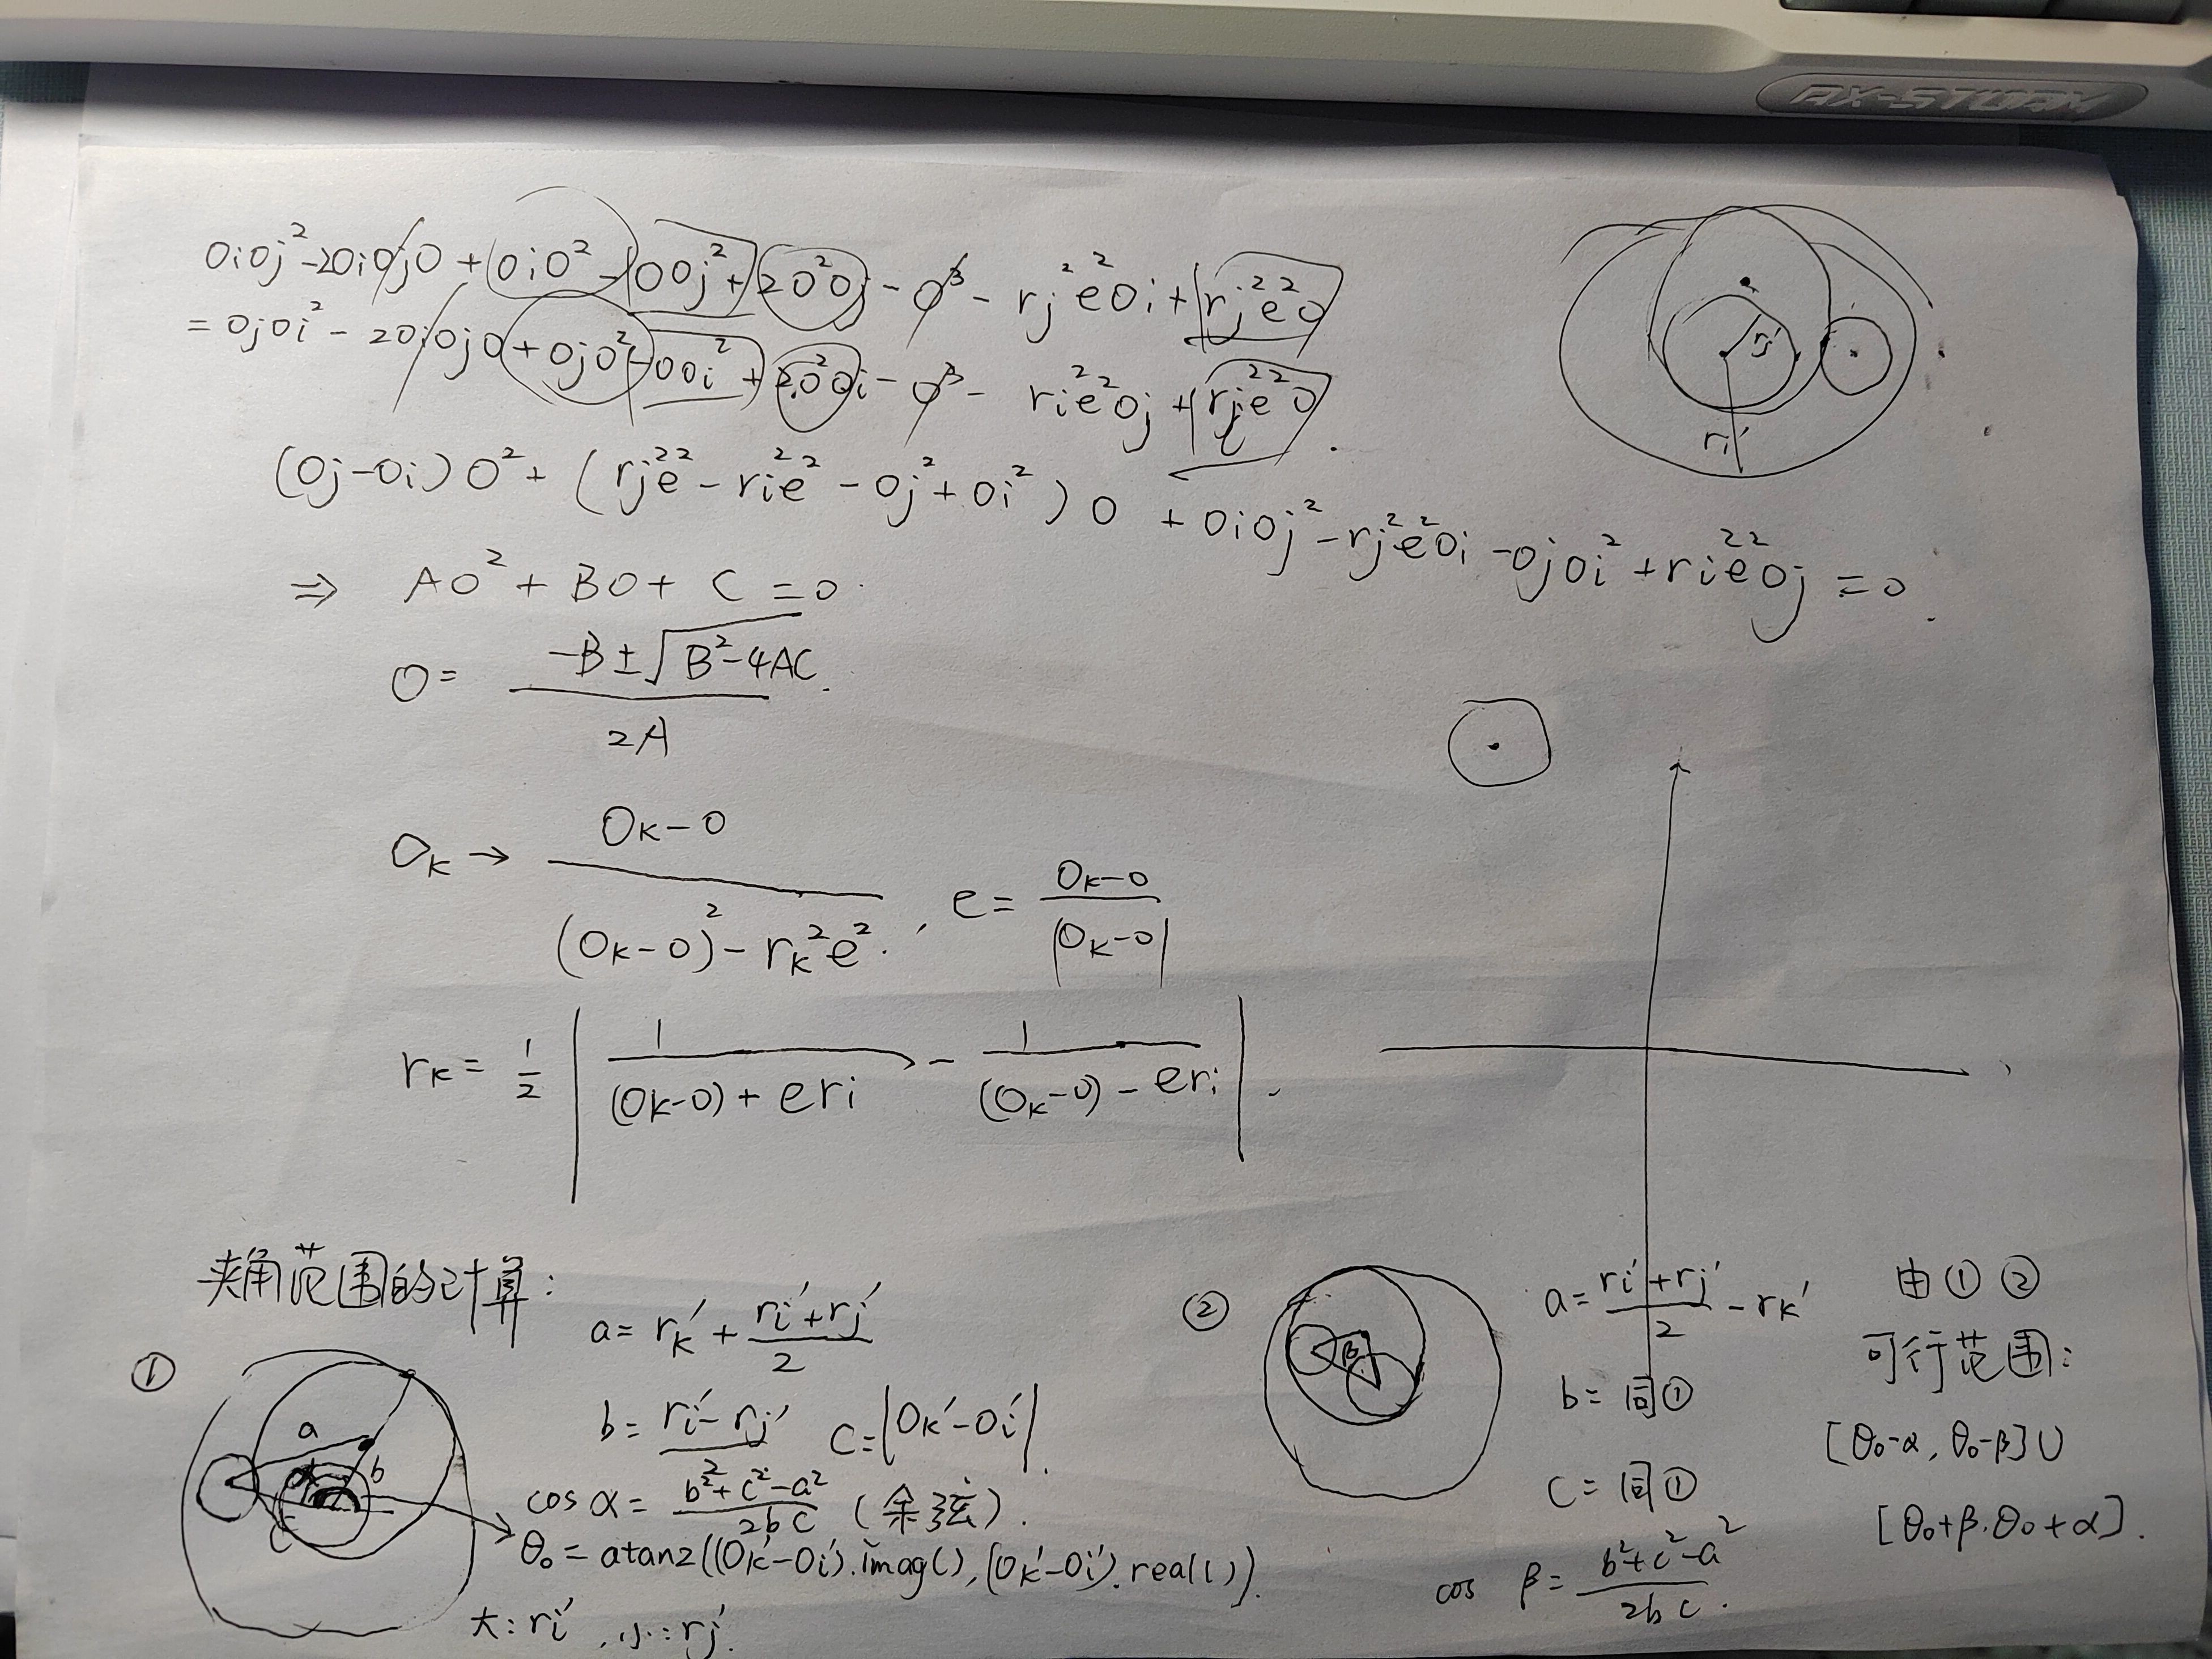 AX-STORM
OiOj²-2OiOjO + OiO² - OOj² + 2O²Oj - O³ - rj²e²Oi + rj²e²O
= OjOi² - 2OiOjO + OjO² - OOi² + 2O²Oi - O³ - ri²e²Oj + rj²e²O.
(Oj-Oi)O² + (rj²e² - ri²e² - Oj² + Oi²)O + OiOj² - rj²e²Oi - OjOi² + ri²e²Oj = 0.
⇒ AO² + BO + C = 0.
O = (-B±√(B²-4AC))/(2A).
Ok → (Ok-O)/((Ok-O)² - rk²e²), e = (Ok-O)/|Ok-O|
rk = 1/2 | 1/((Ok-O)+eri) - 1/((Ok-O)-eri) |.
rj'
ri'
夹角范围的计算:
①
a = rk' + (ri'+rj')/2
b = (ri'-rj')/2 c = |Ok'-Oi'|.
cos α = (b²+c²-a²)/(2bc) (余弦).
θ₀ = atan2((Ok'-Oi').imag(), (Ok'-Oi').real()).
大: ri', 小: rj'.
a
b
α
c
②
β
a = (ri'+rj')/2 - rk'
b = 同①
c = 同①
cos β = (b²+c²-a²)/(2bc).
由①②
可行范围:
[θ₀-α, θ₀-β]∪
[θ₀+β, θ₀+α].